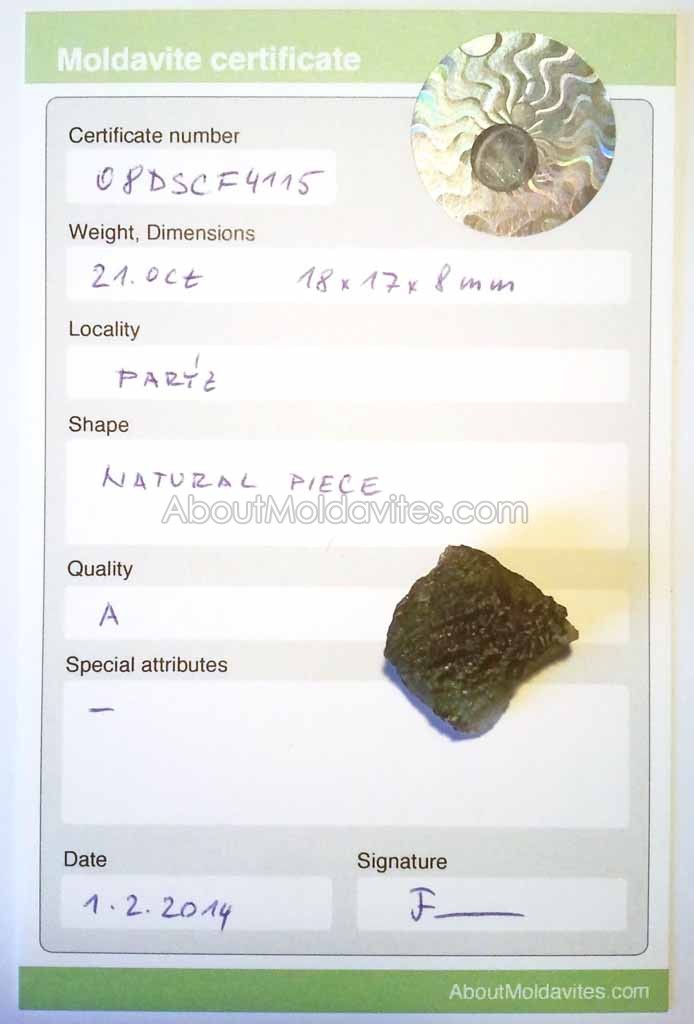 Moldavite certificate
Certificate number
08DSCF4115
Weight, Dimensions
21.0ct 18x17x8mm
Locality
PARÝZ
Shape
NATURAL PIECE
AboutMoldavites.com
Quality
A
Special attributes
–
Date Signature
1.2.2014 F
AboutMoldavites.com